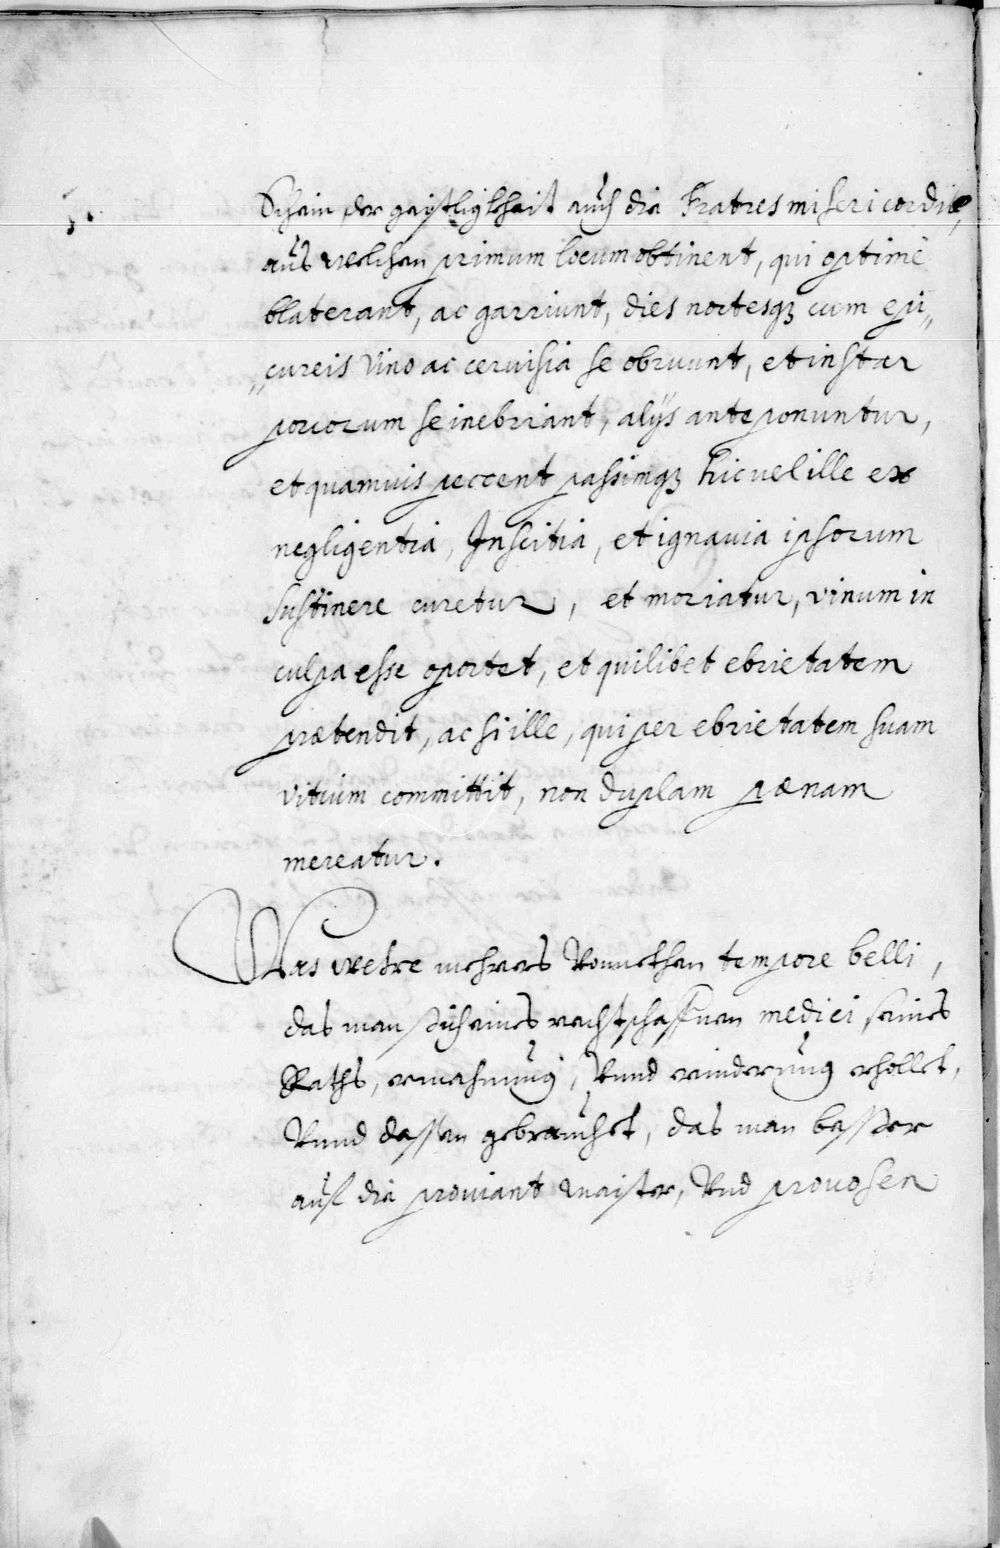 Schein der gaystligkheit auch die Fratres misericordiæ,
aus welchen primum locum obtinent, qui optime
blaterant, ac garriunt, dies noctesq₃ cum epi„
„cureis Vino ac ceruisia se obruunt, et instar
porcorum se inebriant, alÿs anteponuntur,
et quamuis peccent passimq₃ hic vel ille ex
negligentia, Inscitia, et ignauia ipsorum
sustinere curetur, et moriatur, vinum in
culpa esse oportet, et quilibet ebrietatem
prætendit, ac si ille, qui per ebrietatem suam
vitium committit, non duplam pænam
mereatur.
Was were mehrers Vonnethen tempore belli,
das man sich eines rechtschaffnen medici seines
Raths, ermahnung, Vnnd erinderung erhollet,
Vnnd dessen gebrauchet, das man besser
auf die prouiant maister, Vnd prouosen